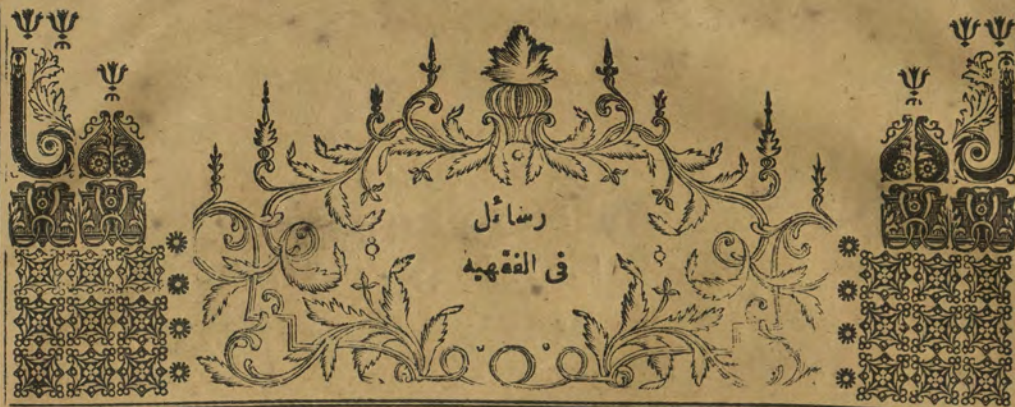 رسائل
فى الفقهيه